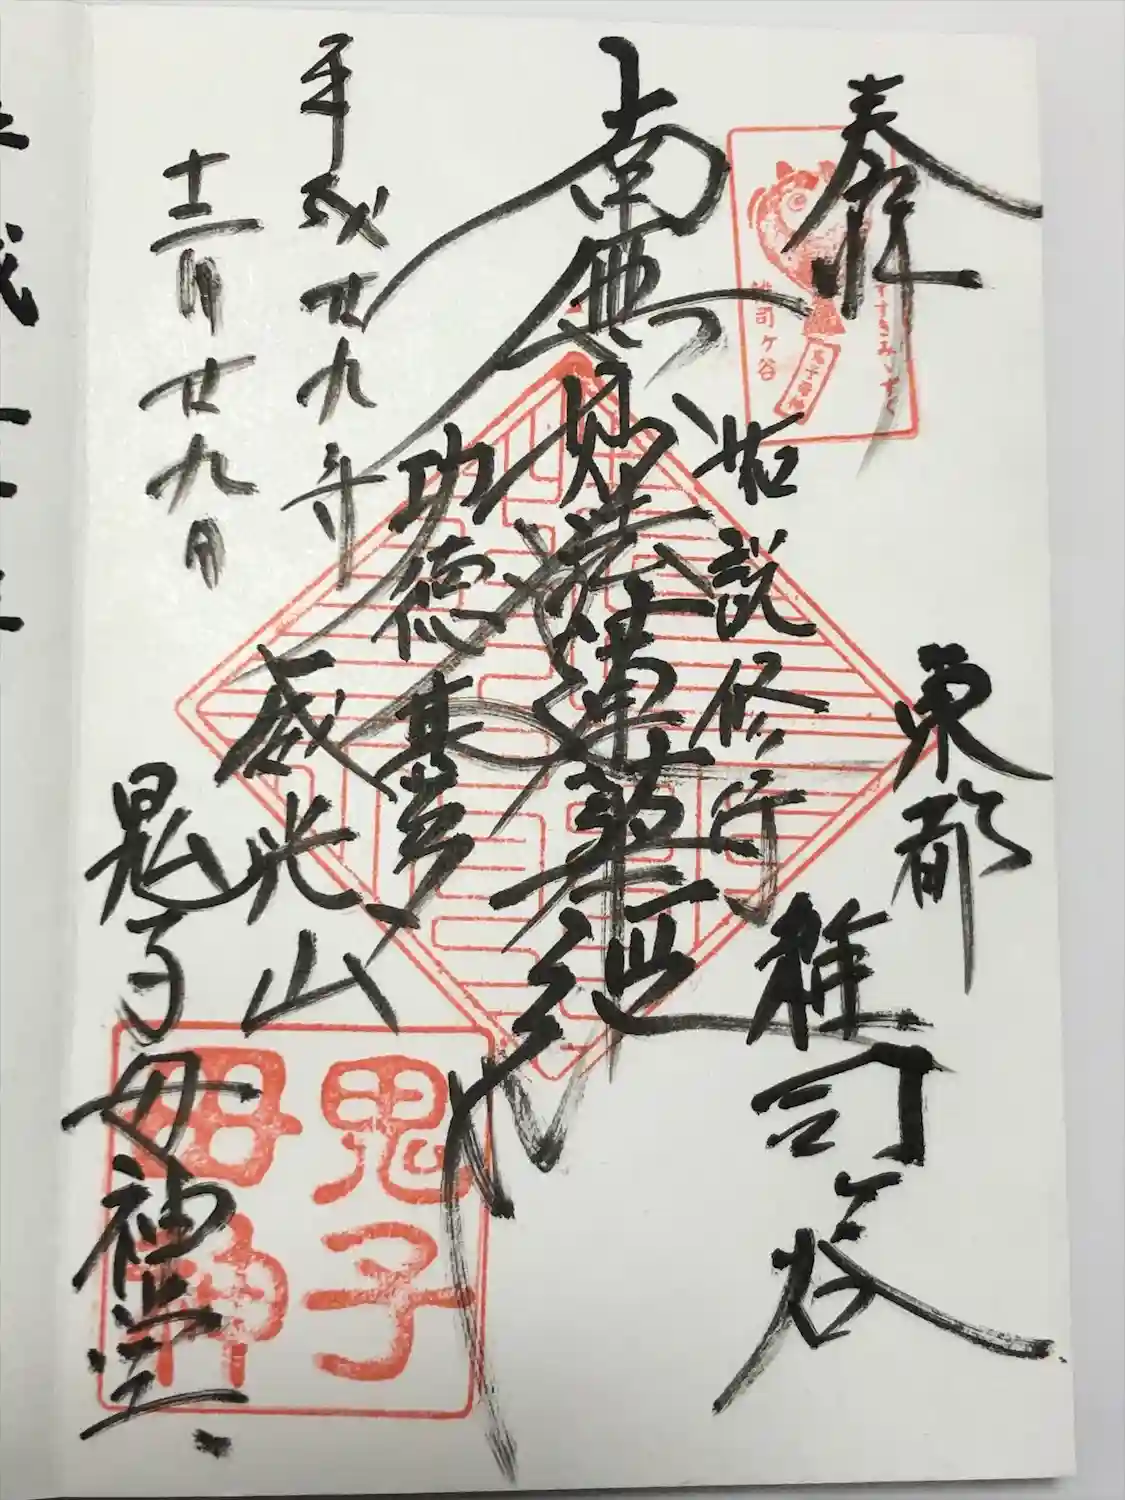 奉拝
すすきみゝずく
雑司ケ谷
鬼子母神
東都
雑司谷
如説修行
南無妙法蓮華経
功徳甚多
威光山
平成廿九年
十二月廿九日
鬼子母神堂
鬼子
母神